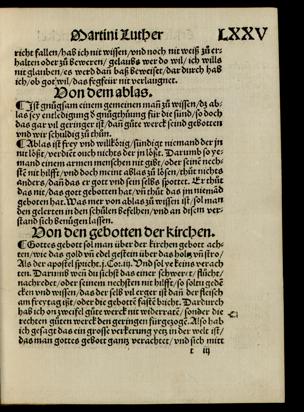 Martini Luther LXXV
richt fallen/hab ich nit wissen/vnd noch nit weiß zů er-
halten oder zů beweren/ gelaubs wer do wil/ich wills
nit glauben/es werd dañ baß beweiset/dar durch hab
ich/ob got wil/das fegfeür nit verlaugnet.
Von dem ablas.
¶ Ist gnůgsam einem gemeinen man zů wissen/dz ab-
las sey entledigung d gnůgthůung für die sünd/so doch
das gar vil geringer ist/dañ gůte werck seind gebotten
vnd wir schuldig zů thůn.
¶ Ablas ist frey vnd willkörig/sündigt niemand der jn
nit lößt/verdiēt auch nichts der jn lößt. Darumb so ye-
mand einem armen menschen nit gibt/oder seinē nech-
stē nit hilfft/vnd doch meint ablas zů lösen/thůt nichts
anders/dañ das er gott vnd sein selbs spottet. Er thůt
das nit/das gott gebotten hat/vñ thůt das jm niemād
geboten hat. Was mer von ablas zů wissen ist/sol man
den gelerten in den schůlen befelhen/vnd an disem ver-
stand sich benügen lassen.
Von den gebotten der kirchen.
¶ Gottes gebott sol man über der kirchen gebott ach-
ten/wie das gold vñ edel gestein über das holtz vñ stro/
Als der apostel spricht.j.Cor.iij. Vnd sol ye keins verach-
ten. Darumb weñ du sichst das einer schwert/flücht/
nachredet/oder seinem nechsten nit hilfft/so soltu gedē
cken vnd wissen/das der selb vil erger ist dañ der fleisch
am freytag ißt/oder die gebottē fastē bricht. Dardurch
hab ich on zweifel gůte werck nit widerratē/sonder die
rechten gůten werck den geringen fürgezogē. Also hab
ich gesagt das ein grosse verkerung yetz in der welt ist/
das man gottes gebot gantz verachtet/vnd sich mitt
t iij